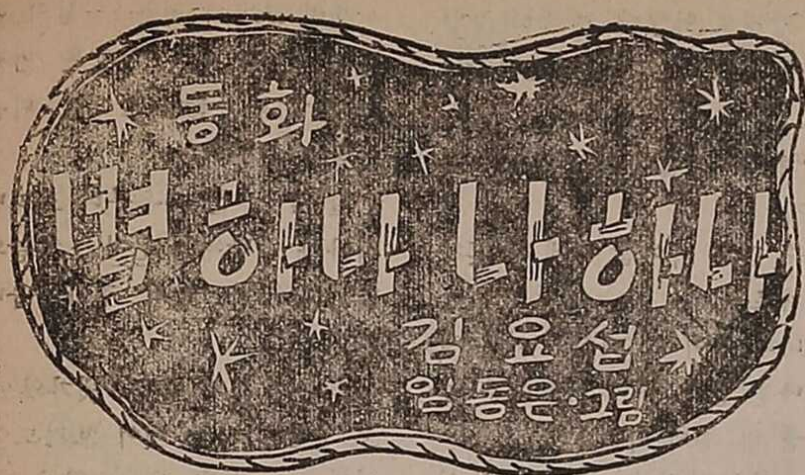 동화
별 하나 나 하나
김요섭
임동은·그림